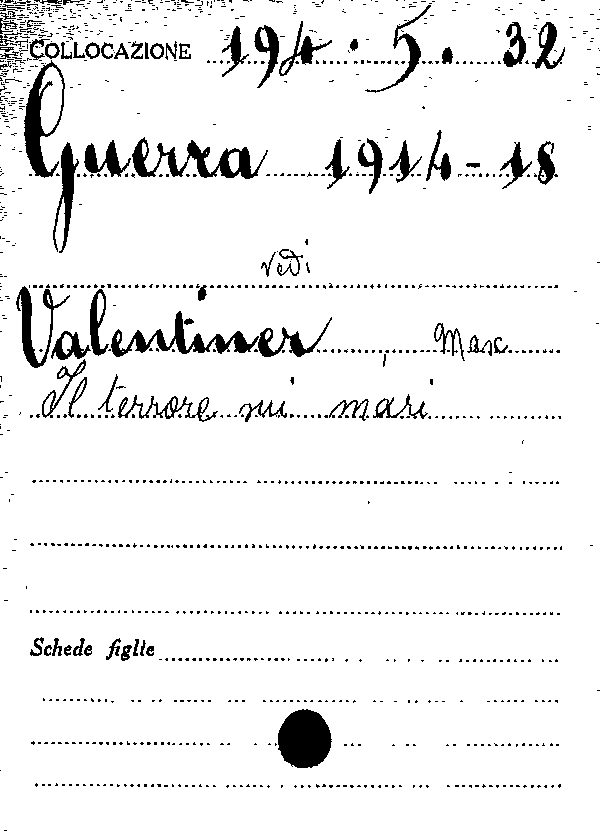 COLLOCAZIONE 194.5.32
Guerra 1914-18
vedi
Valentiner, Max
Il terrore sui mari
Schede figlie